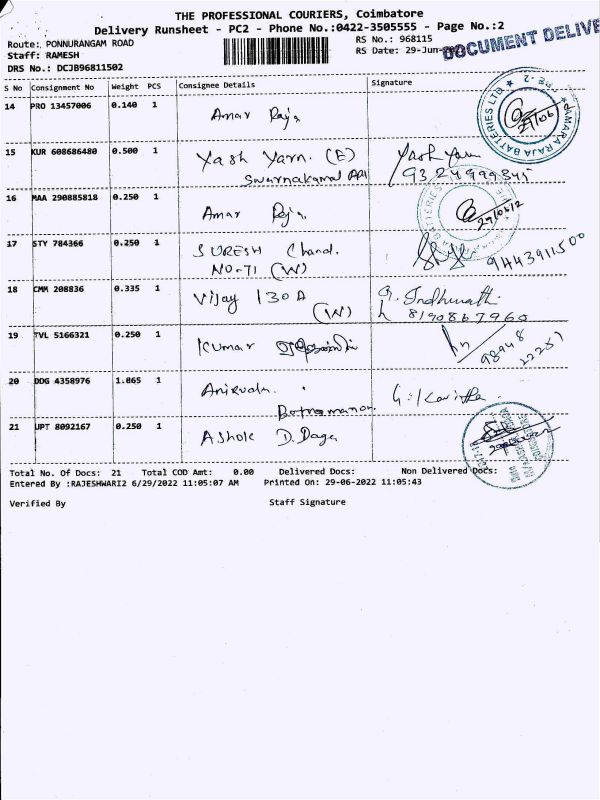 THE PROFESSIONAL COURIERS, Coimbatore
Delivery Runsheet - PC2 - Phone No.:0422-3505555 - Page No.:2
Route: PONNURANGAM ROAD
Staff: RAMESH
DRS No.: DCJB96811502
RS No.: 968115
RS Date: 29-Jun-
DOCUMENT DELIVE
S No Consignment No Weight PCS Consignee Details Signature
14 PRO 13457006 0.140 1 Amar Raja
AMARARAJA BATTERIES LTD
15 KUR 608686480 0.500 1 Yash Yarn. (E) Yash Yarn
Swarnakamal 9324999845
16 MAA 290885818 0.250 1 Amar Raja
17 STY 784366 0.250 1 SURESH Chand. 9443911500
NO-71 (W)
18 CMM 208836 0.335 1 Vijay 130A
(W) 8190867965
19 TVL 5166321 0.250 1 Kumar
98948
22251
20 DDG 4358976 1.865 1
21 UPT 8092167 0.250 1 Ashok D. Daga
Total No. Of Docs: 21 Total COD Amt: 0.00 Delivered Docs: Non Delivered Docs:
Entered By :RAJESHWARI2 6/29/2022 11:05:07 AM Printed On: 29-06-2022 11:05:43
Verified By Staff Signature